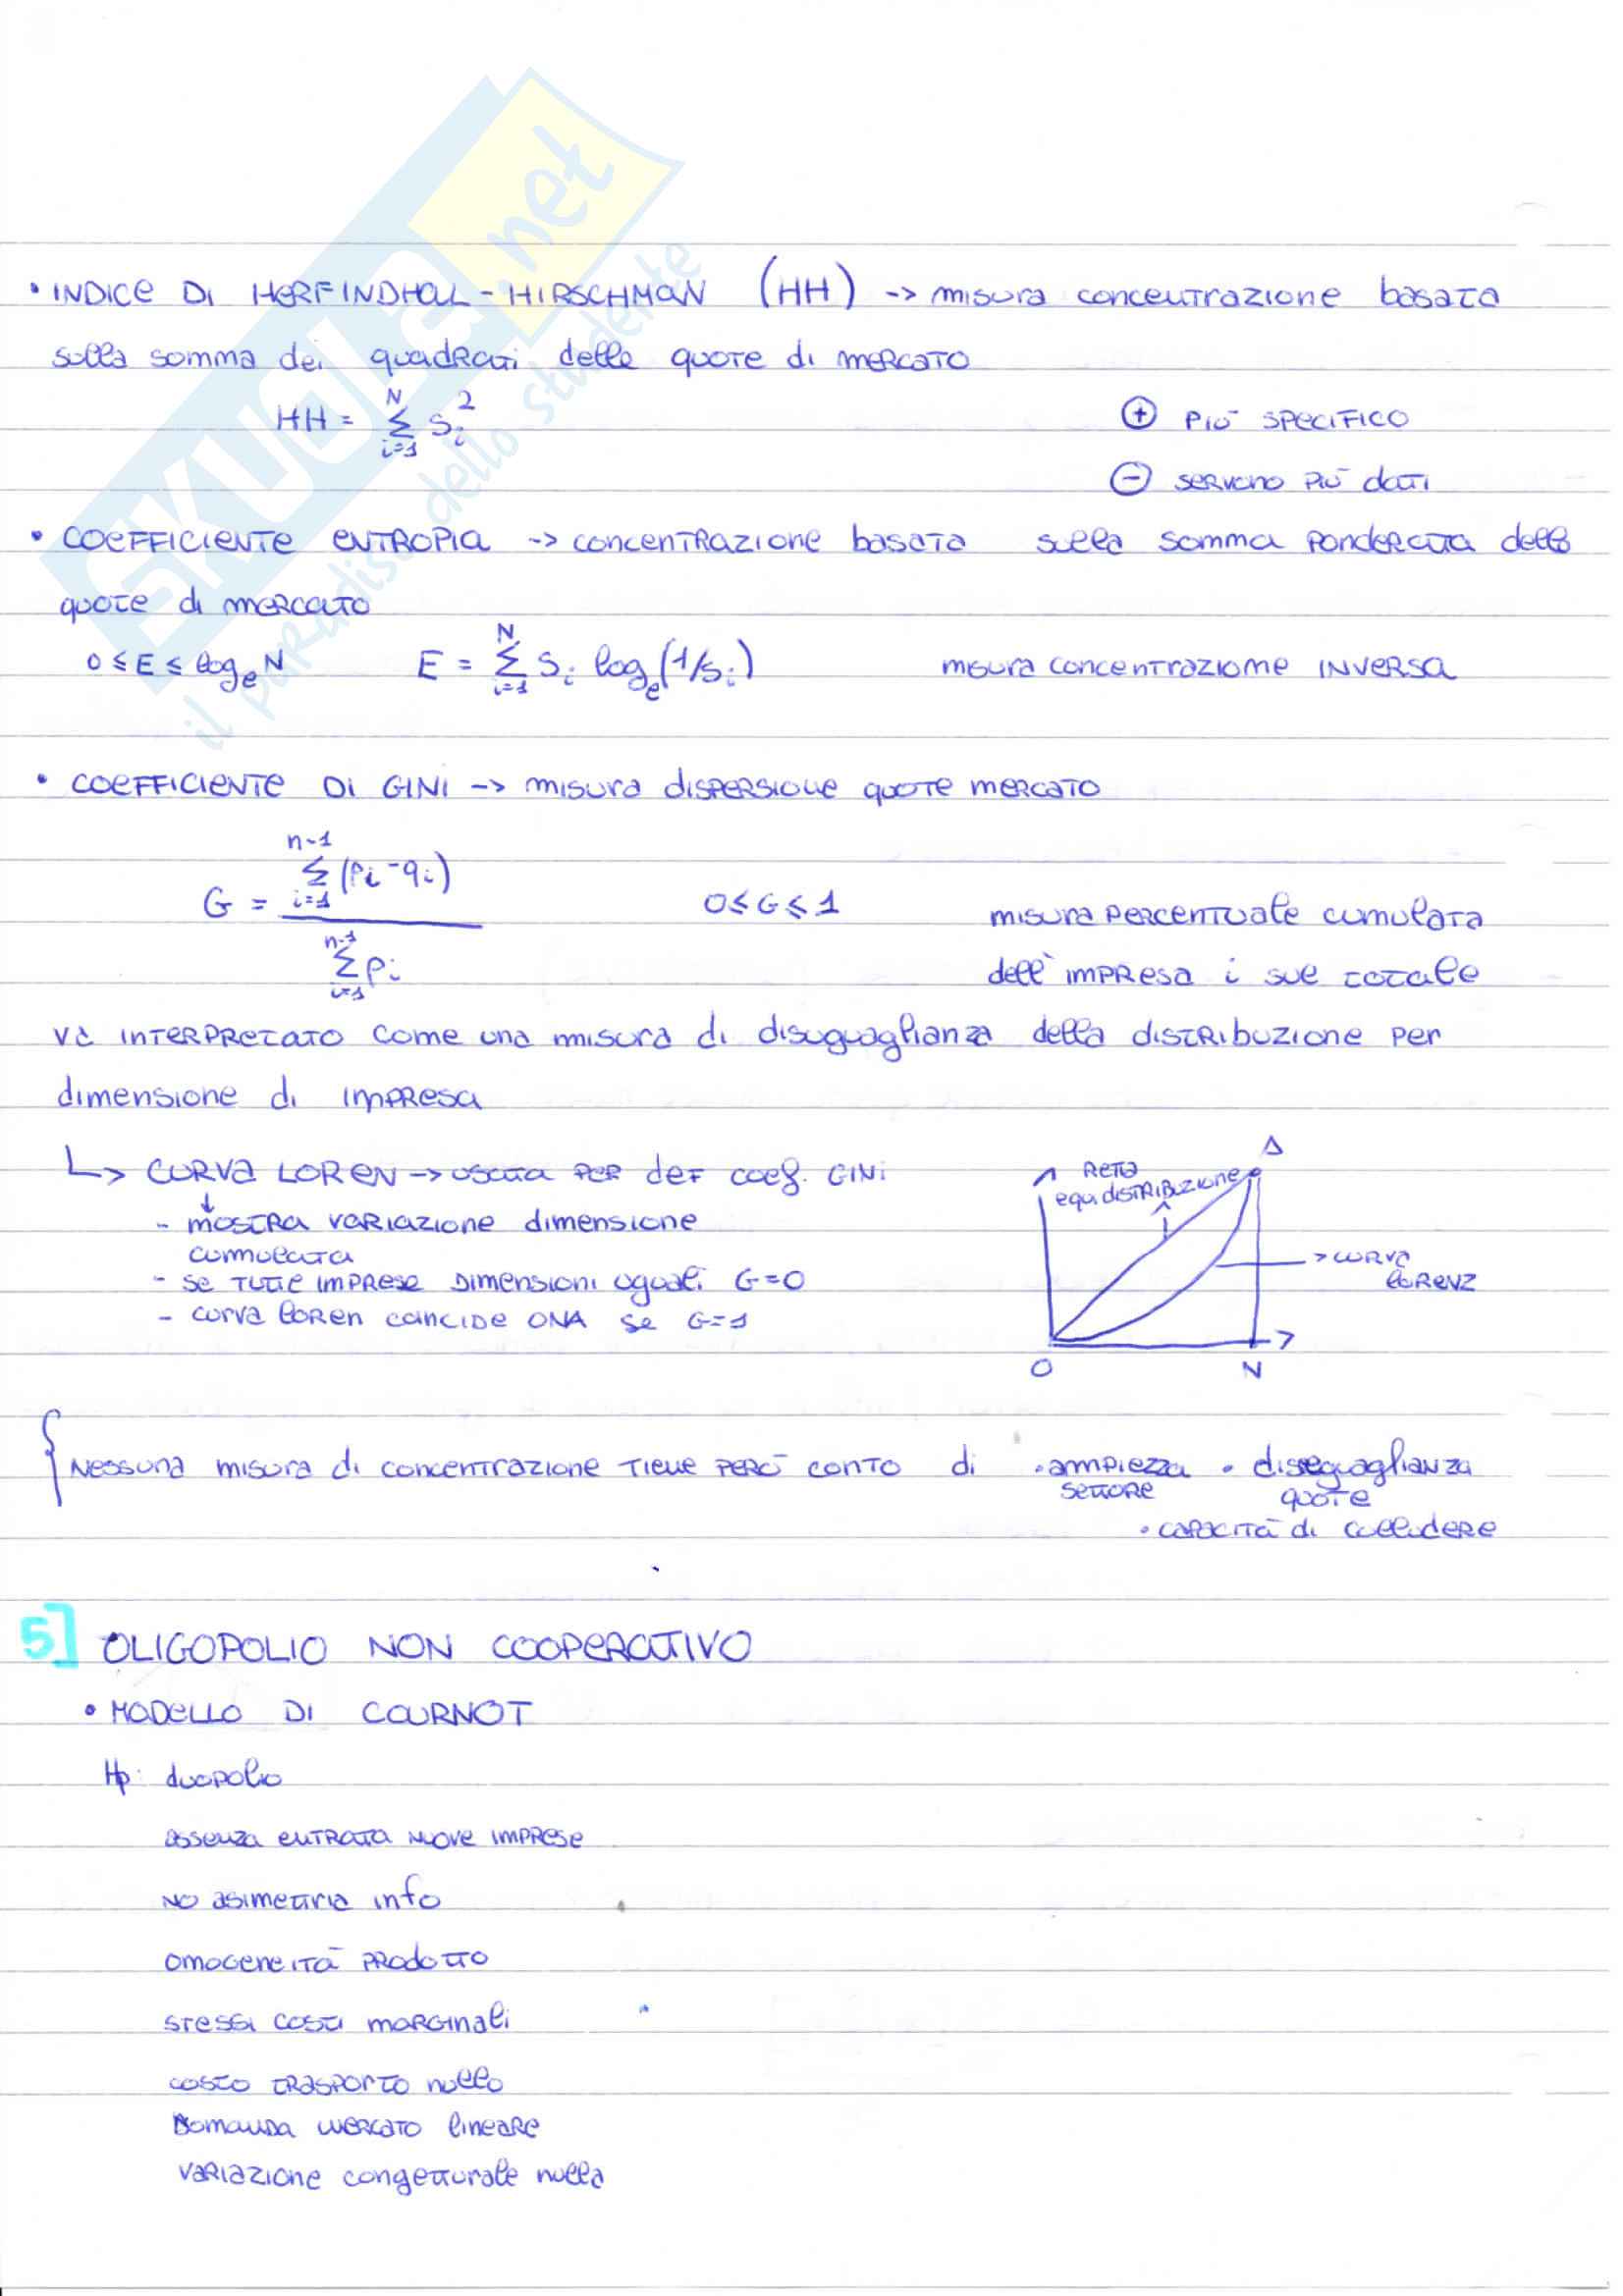 SKUOLA.net
il paradiso dello studente
• INDICE DI HERFINDHAL - HIRSCHMAN (HH) -> misura concentrazione basata
sulla somma dei quadrati delle quote di mercato
HH = N Σ i=1 s_i^2
⊕ più specifico
⊖ servono più dati
• COEFFICIENTE ENTROPIA -> concentrazione basata sulla somma ponderata delle
quote di mercato
0 ≤ E ≤ log_e N E = N Σ i=1 S_i log_e (1/s_i) misura concentrazione INVERSA
• COEFFICIENTE DI GINI -> misura dispersione quote mercato
G = n-1 Σ i=1 (Pi - qi) / n-1 Σ i=1 Pi 0 ≤ G ≤ 1 misura percentuale cumulata
dell'impresa i sul totale
va interpretato come una misura di disuguaglianza della distribuzione per
dimensione di impresa
↳ CURVA LOREN -> usata per def coeff. GINI
↓
- mostra variazione dimensione
cumulata
- se tutte imprese dimensioni uguali G=0
- curva loren coincide ONA se G=1
A
retta
equidistribuzione
-> curva
lorenz
O N
{ Nessuna misura di concentrazione tiene però conto di • ampiezza • diseguaglianza
settore quote
• capacità di colludere
5] OLIGOPOLIO NON COOPERATIVO
• MODELLO DI COURNOT
Hp: duopolio
assenza entrata nuove imprese
no asimetria info
omogeneità prodotto
stessi costi marginali
costo trasporto nullo
Domanda mercato lineare
variazione congetturale nulla